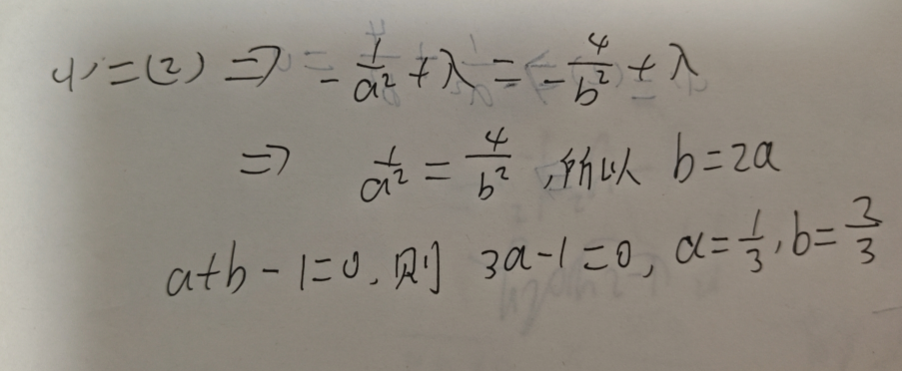 (1)=(2) ⇒ -1/a² + λ = -4/b² + λ
⇒ 1/a² = 4/b² ,所以 b=2a
a+b-1=0, 则 3a-1=0, a=1/3, b=2/3